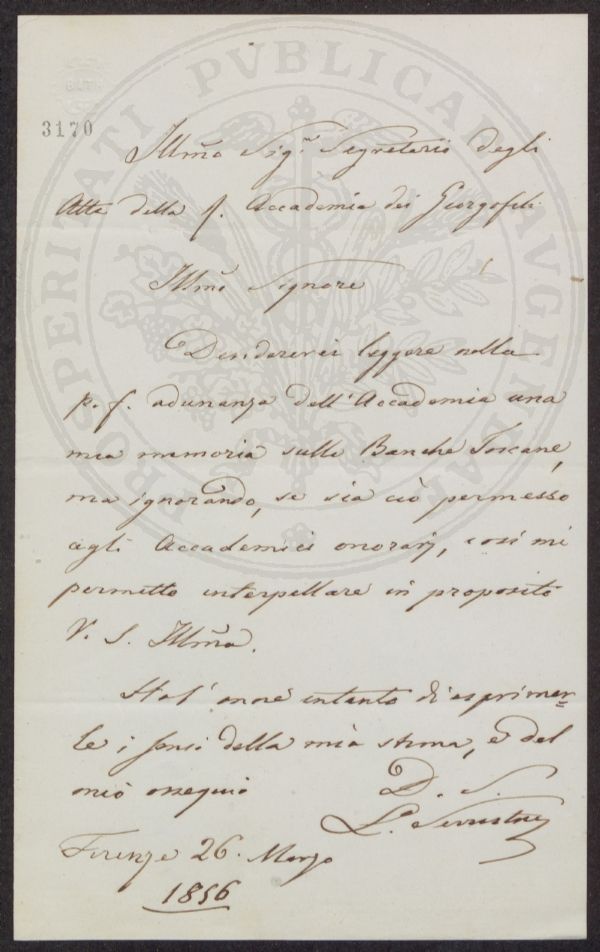 PROSPERITATI PVBLICAE AVGENDAE
3170
Illmo Sigr Segretario degli
Atti della R. Accademia dei Georgofili
Illmo Signore
Desidererei leggere nella
p. f. adunanza dell'Accademia una
mia memoria sulle Banche Toscane,
ma ignorando, se sia ciò permesso
agli Accademici onorarj, così mi
permetto interpellare in proposito
V. S. Illma.
Ho l'onore intanto di esprimer-
le i sensi della mia stima, e del
mio ossequio
D. S.
L. Serristori
Firenze 26. Marzo
1856